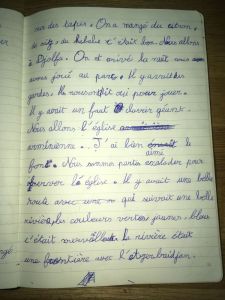 sur des tapis. On a mangé du citron,
du riz, du kebab c'était bon. Nous allons
à Djolfa. On est arrivé la nuit
avons joué au parc. Il y avait des
gardes. Ils nous ont dit oui pour jouer.
Il y avait un faut devoir géant.
Nous allons l'église
arménienne. J'ai bien aimé le
font. Nous somme partis escalader pour
l'église. Il y avait une belle
route avec une qui suivait une belle
rivière, les couleurs vertes jaunes bleus
c'était La rivière était
une frontière avec l'Azerbaïdjan.
gé